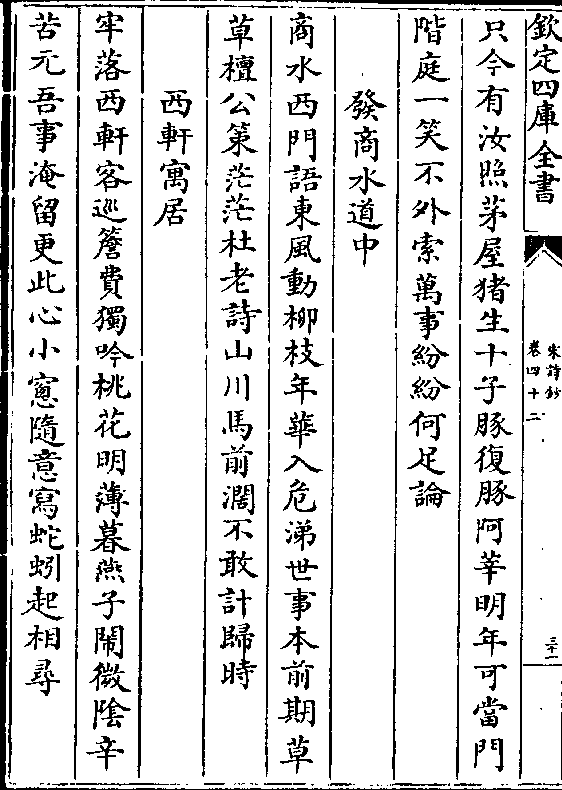 欽定四庫全書
宋詩鈔
卷四十二
三十一
只今有汝照茅屋猪生十子豚復豚阿莘明年可當門
階庭一笑不外索萬事紛紛何足論
發商水道中
商水西門語東風動柳枝年華入危涕世事本前期草
草檀公策茫茫杜老詩山川馬前濶不敢計歸時
西軒寓居
牢落西軒客巡簷費獨吟桃花明薄暮燕子鬧微陰辛
苦元吾事淹留更此心小窻隨意寫蛇蚓起相尋